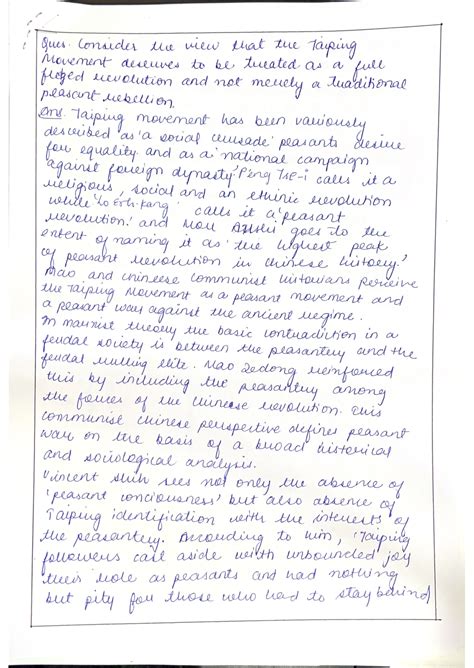 Ques. Consider the view that the Taiping
Movement deserves to be treated as a full
fledged revolution and not merely a traditional
peasant rebellion.
Ans. Taiping movement has been variously
described as 'a social crusade' peasants desire
for equality and as a 'national campaign
against foreign dynasty' P'ing Tse-i calls it a
religious, social and an ethnic revolution
while 'Lo Erh-kang' calls it a 'peasant
revolution.' and Hou goes to the
extent of naming it as 'the highest peak
of peasant revolution in chinese history.'
Mao and chineese communist historians perceive
the Taiping Movement as a peasant movement and
a peasant war against the ancient regime.
In marxist theory the basic contradiction in a
feudal society is between the peasantry and the
feudal rulling elite. Mao Zedong reinforced
this by including the peasantry among
the forces of the chinese revolution. This
communist chinese perspective defines peasant
war on the basis of a broad historical
and sociological analysis.
Vincent shih sees not only the absence of
'peasant conciousness' but also absence of
Taiping identification with the interests of
the peasantry. According to him, 'Taiping
followers cast aside with unbounded joy
their role as peasants and had nothing
but pity for those who had to stay behind